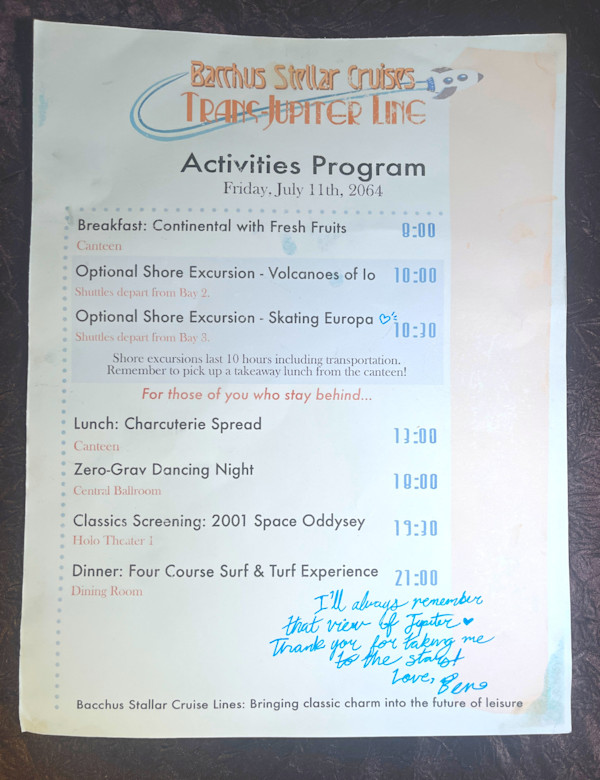 Bacchus Stellar Cruises
Trans-Jupiter Line
Activities Program
Friday, July 11th, 2064
Breakfast: Continental with Fresh Fruits 8:00
Canteen
Optional Shore Excursion - Volcanoes of Io 10:00
Shuttles depart from Bay 2.
Optional Shore Excursion - Skating Europa ♡ 10:30
Shuttles depart from Bay 3.
Shore excursions last 10 hours including transportation.
Remember to pick up a takeaway lunch from the canteen!
For those of you who stay behind...
Lunch: Charcuterie Spread 13:00
Canteen
Zero-Grav Dancing Night 18:00
Central Ballroom
Classics Screening: 2001 Space Oddysey 19:30
Holo Theater 1
Dinner: Four Course Surf & Turf Experience 21:00
Dining Room
I'll always remember
that view of Jupiter ♥
Thank you for taking me
to the stars!
Love,
Ben
Bacchus Stallar Cruise Lines: Bringing classic charm into the future of leisure